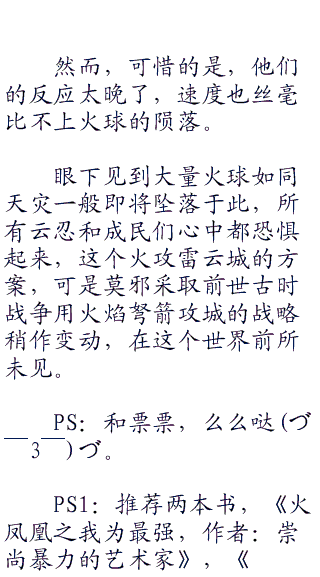 然而，可惜的是，他们
的反应太晚了，速度也丝毫
比不上火球的陨落。
眼下见到大量火球如同
天灾一般即将坠落于此，所
有云忍和成民们心中都恐惧
起来，这个火攻雷云城的方
案，可是莫邪采取前世古时
战争用火焰弩箭攻城的战略
稍作变动，在这个世界前所
未见。
PS：和票票，么么哒(づ
￣ 3￣)づ。
PS1：推荐两本书，《火
凤凰之我为最强，作者：崇
尚暴力的艺术家》，《